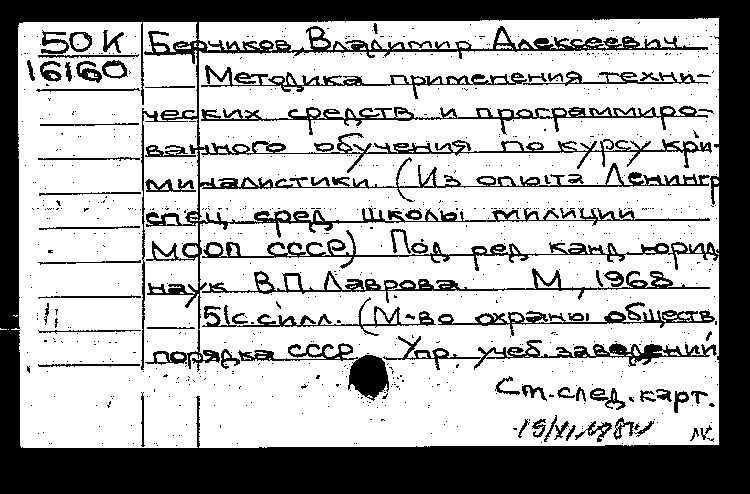 50К Берчиков, Владимир Алексеевич.
16160 Методика применения техни-
ческих средств и программиро-
ванного обучения по курсу кри-
миналистики. (Из опыта Ленингр
спец. сред. школы милиции
МООП СССР.) Под ред. канд. юрид.
наук В.П. Лаврова. М., 1968.
51с. с илл. (М-во охраны обществ.
порядка СССР. Упр. учеб. заведений
См. след. карт.